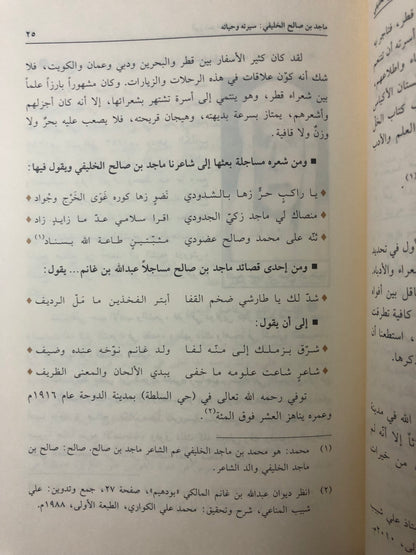 ماجد بن صالح الخليفي: سيرته وحياته
٢٥
لقد كان كثير الأسفار بين قطر والبحرين ودبي وعمان والكويت، فلا
شك أنه كوّن علاقات في هذه الرحلات والزيارات. وكان مشهوراً بارزاً علماً
بين شعراء قطر، وهو ينتمي إلى أسرة تشتهر بشعرائها، إلا أنه كان أجزلهم
وأشعرهم، يمتاز بسرعة بديهته، وهيجان قريحته، فلا يصعب عليه بحرٌ ولا
وزنٌ ولا قافية.
■ ومن شعره مساجلة بعثها إلى شاعرنا ماجد بن صالح الخليفي ويقول فيها:
يا راكبٍ حرٍّ زها بالشدودي نضوٍ زها كوره غَوَى الخَرْج وجواد
منصاك لي ماجد زكيّ الجدودي اقرا سلامي عدّ ما زايدٍ زاد
ثنّه على محمد وصالح عضودي مشتنينٍ طاعة الله بسناد(١)
■ ومن إحدى قصائد ماجد بن صالح مساجلاً عبدالله بن غانم... يقول:
شدّ لك يا طارشي ضخم القفا أبتر الفخذين ما ملّ الرديف
■ إلى أن يقول:
شرّق بزملك إلى منّه لفا ولد غانم نوّخه عنده وضيف
شاعرٍ شاعت علومه ما خفى يبدي الألحان والمعنى الظريف
توفي رحمه الله تعالى في (حي السلطة) بمدينة الدوحة عام ١٩١٦م
وعمره يناهز العشر فوق المئة(٢).
(١) محمد: هو محمد بن ماجد الخليفي عم الشاعر ماجد بن صالح. صالح: صالح بن
ماجد الخليفي والد الشاعر.
(٢) انظر ديوان عبدالله بن غانم المالكي «بودهيم»، صفحة ٢٧، جمع وتدوين: علي
شبيب المناعي، شرح وتحقيق: محمد علي الكواري، الطبعة الأولى، ١٩٨٨م.